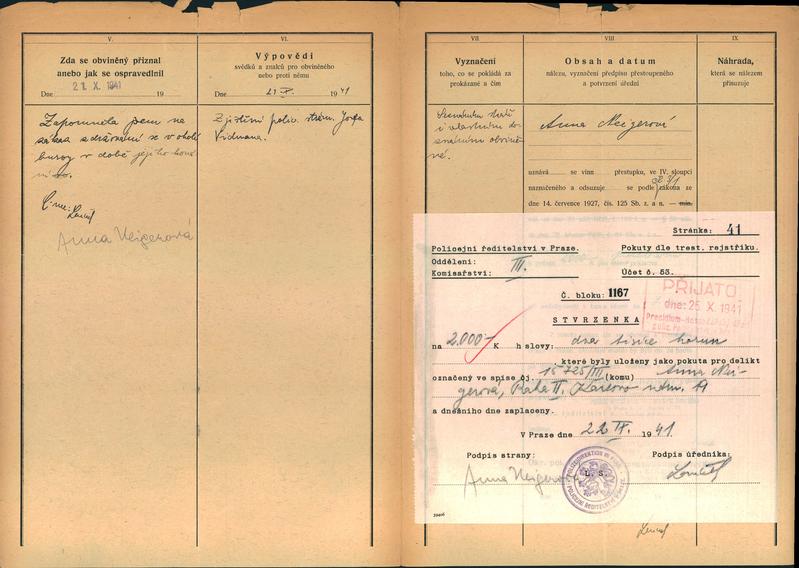 V.
Zda se obviněný přiznal
anebo jak se ospravedlnil
Dne 21. X. 1941 19
Zapomněla jsem na
zákaz zdržování se v okolí
burzy v době jejího koná
ní
Anna Neigerová
VI.
Výpovědi
svědků a znalců pro obviněného
nebo proti němu
Dne 21 19 41
Zjištění polic. strážm. Josefa
Vidmana.
VII.
Vyznačení
toho, co se pokládá za
prokázané a čím
vlastním do-
znáním obvině
né.
VIII
Obsah a datum
nálezu, vyznačení předpisu přestoupeného
a potvrzení úřední
Anna Neigerová
uznává se vinn přestupku, ve IV. sloupci
naznačeného a odsuzuje se podle zákona ze
dne 14. července 1927, čís. 125 Sb. z. a n.
IX
Náhrada,
která se nálezem
přisuzuje
Stránka: 41
Policejní ředitelství v Praze.
Pokuty dle trest. rejstříku.
Oddělení:
Komisařství: III.
Účet č. 53.
PŘIJATO
dne: 25. X. 1941
Č. bloku: 1167
STVRZENKA
na 2.000·- K h slovy: dva tisíce korun
, které byly uloženy jako pokuta pro delikt
označený ve spise čj. 15725/III (komu) Anna Nei-
gerová, Praha II. Karlovo nám. 19
a dnešního dne zaplaceny.
V Praze dne 22 IX. 19 41.
Podpis strany:
Podpis úředníka:
Anna Neigerová
L. S.
POLIZEIDIREKTION IN PRAG
POLICEJNÍ ŘEDITELSTVÍ V PRAZE